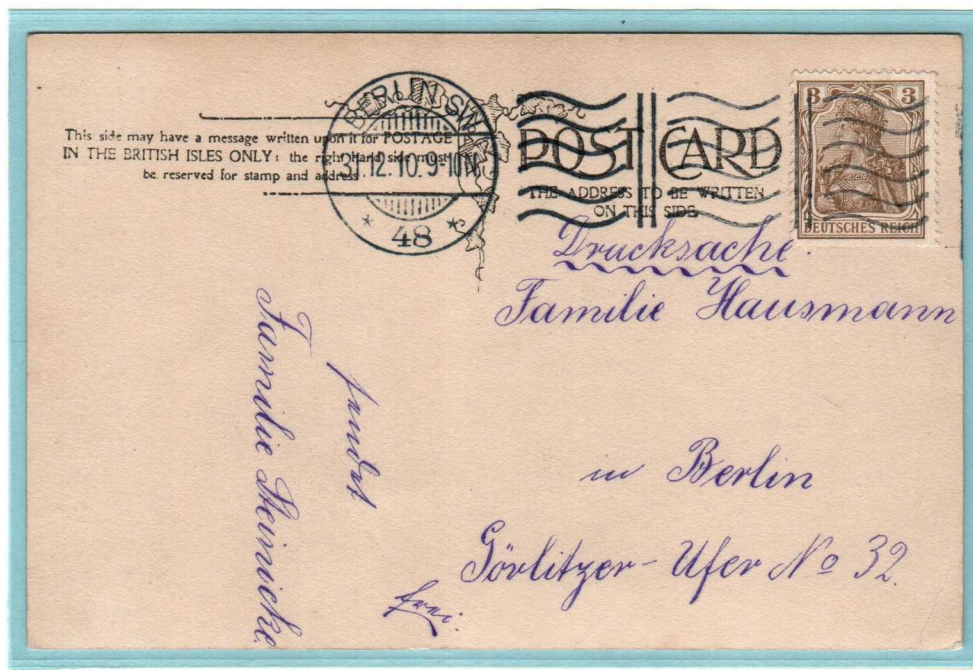 This side may have a message written upon it for POSTAGE
IN THE BRITISH ISLES ONLY: the right hand side must
be reserved for stamp and address
BERLIN SW
31.12.10.9-10
* 48 *
POST CARD
THE ADDRESS TO BE WRITTEN
ON THIS SIDE
3 3
DEUTSCHES REICH
Drucksache.
Familie Hausmann
in Berlin
Görlitzer-Ufer No 32.
frei.
sendet
Familie Steinicke